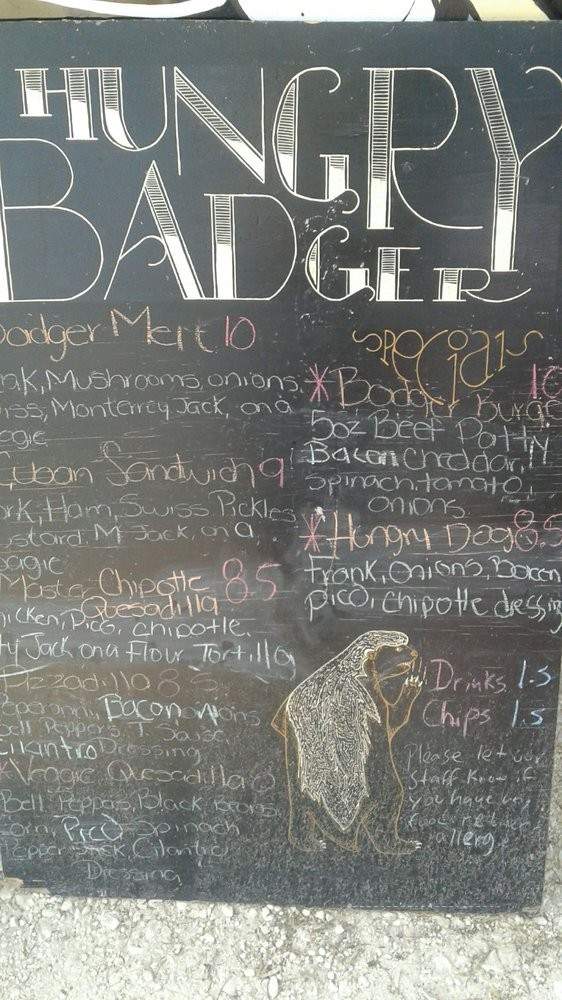 HUNGRY
BADGER
Badger Melt 10
Mushrooms, onions
Monterrey Jack, on a
Cuban Sandwich 9
Ham, Swiss, Pickles
M Jack, on a
Master Chipotle 8.5
Quesadilla
Pico, chipotle,
Jack on a Flour Tortilla
Pizzadilla 8.5
Bacon
Bell Peppers, T. Sauce
Cilantro Dressing
*Veggie Quesadilla 8
Bell Peppers, Black Beans,
Corn, Pico, Spinach
PepperJack, Cilantro
Dressing
Specials
*Badger Burge 10
5oz Beef Patty
Bacon Cheddar,
Spinach, tomato,
onions
*Hungry Dog 8.5
Frank, Onions, Bacon
pico, chipotle dressin
Drinks 1.5
Chips 1.5
Please let our
Staff Know if
you have any
food related
allerg